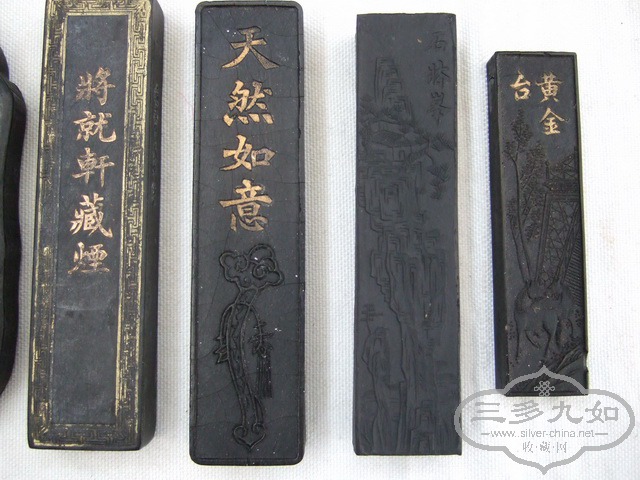 將就軒藏煙
天然如意
黃金
台
三多九如
www.silver-china.net
收·藏·网